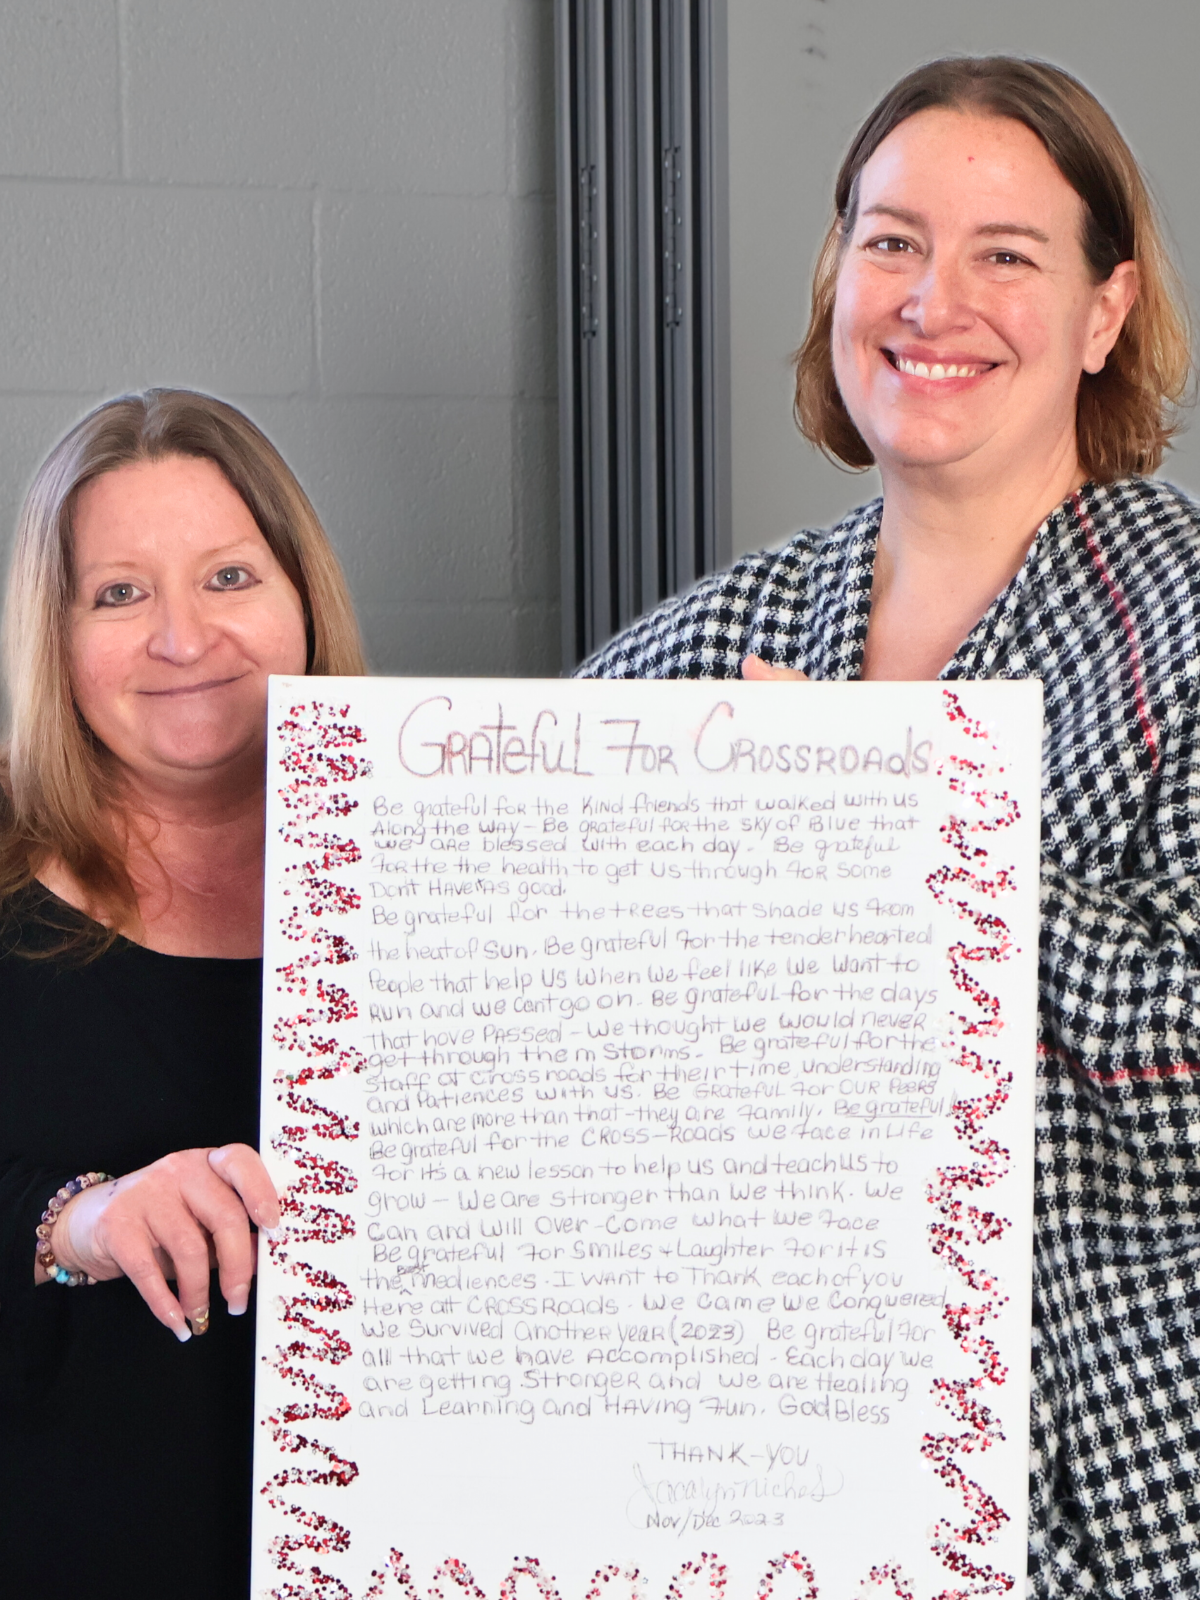 Grateful For Crossroads
Be grateful for the Kind friends that walked with us
Along the way - Be grateful for the sky of Blue that
we are blessed with each day. Be grateful
for the the health to get us through for some
Dont Have it as good.
Be grateful for the trees that shade us from
the heat of sun. Be grateful for the tender hearted
People that help us when we feel like we want to
Run and we cant go on. Be grateful for the days
that have Passed - We thought we would never
get through them storms. Be grateful for the
staff at crossroads for their time, understanding
and Patiences with us. Be Grateful for our Peers
which are more than that - they are family. Be grateful!
Be grateful for the Cross-Roads we face in Life
for it's a new lesson to help us and teach us to
grow - We are stronger than we think. We
Can and will over-come what we face
Be grateful for smiles + Laughter for it is
the best mediences. I want to Thank each of you
Here at Crossroads. We Came We Conquered
We Survived another year (2023) Be grateful for
all that we have Accomplished - Each day we
are getting Stronger and we are Healing
and Learning and Having fun. God Bless
THANK-YOU
Jacalyn
Nov/Dec 2023